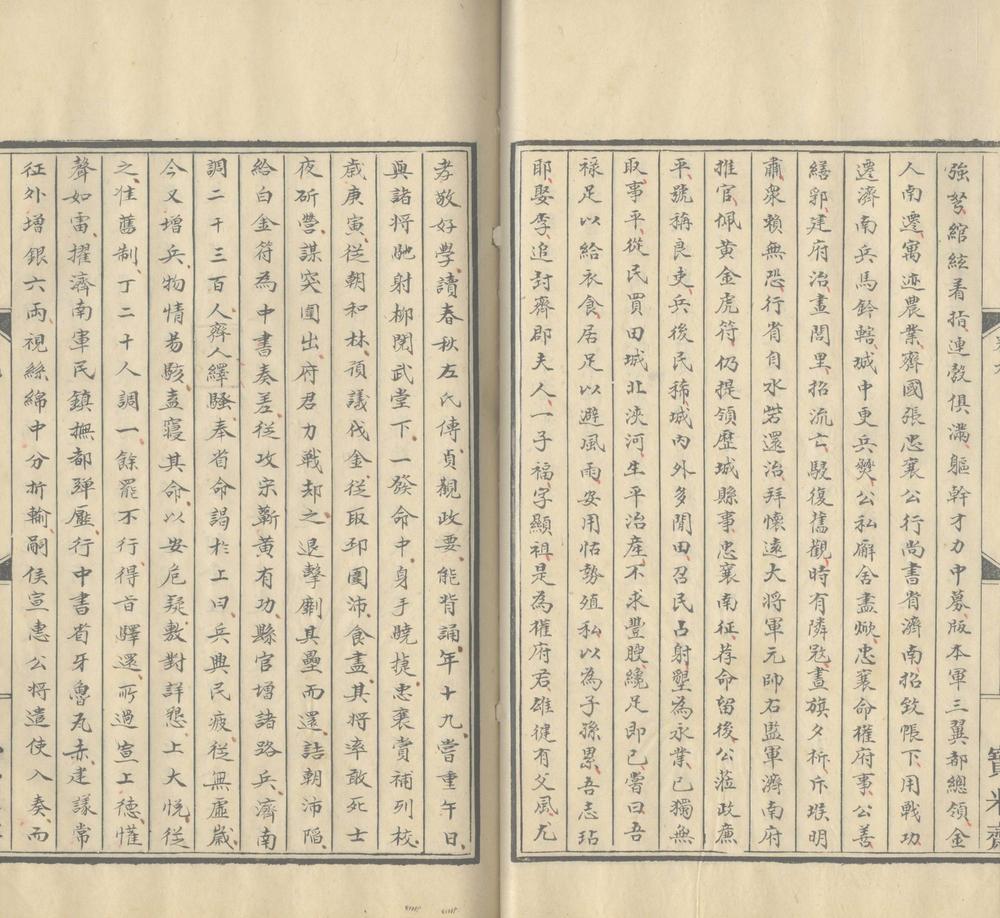 強弩綰絃着指連彀俱滿軀幹才力中募版本軍三翼都總領金
人南遷寓迹農業齊國張忠襄公行尚書省濟南招致帳下用戰功
遷濟南兵馬鈐轄城中更兵燹公私廨舍盡燬忠襄命權府事公善
繕郭建府治畫閭里招流亡駸復舊觀時有隣寇晝旗夕柝斥堠明
肅衆賴無恐行省自水砦還治拜懷遠大將軍元帥右監軍濟南府
推官佩黃金虎符仍提領歷城縣事忠襄南征荐命留後公蒞政廉
平號稱良吏兵後民稀城內外多閒田召民占射墾為永業己獨無
取事平從民買田城北浹河生平治產不求豐腴纔足即已嘗曰吾
祿足以給衣食居足以避風雨安用怙勢殖私以為子孫累吾志玷
耶娶李追封齊郡夫人一子福字顯祖是為權府君雄健有父風尤
孝敬好學讀春秋左氏傳貞觀政要能背誦年十九嘗重午日
與諸將馳射柳閱武堂下一發命中身手曉捷忠襄賞補列校
歲庚寅從朝和林預議伐金從取邳圍沛食盡其將率敢死士
夜斫營謀突圍出府君力戰却之退擊劘其壘而還詰朝沛陷
給白金符為中書奏差從攻宋蘄黃有功縣官增諸路兵濟南
調二千三百人齊人繹騷奉省命謁於上曰兵興民疲從無虛歲
今又增兵物情昜駭盍寢其命以安危疑敷對詳懇上大悅從
之准舊制丁二十人調一餘罷不行得旨驛還所過宣上德懽
聲如雷擢濟南軍民鎮撫都彈壓行中書省牙魯瓦赤建議常
征外增銀六兩視絲綿中分折輸嗣侯宣惠公將遣使入奏而
寶米齋